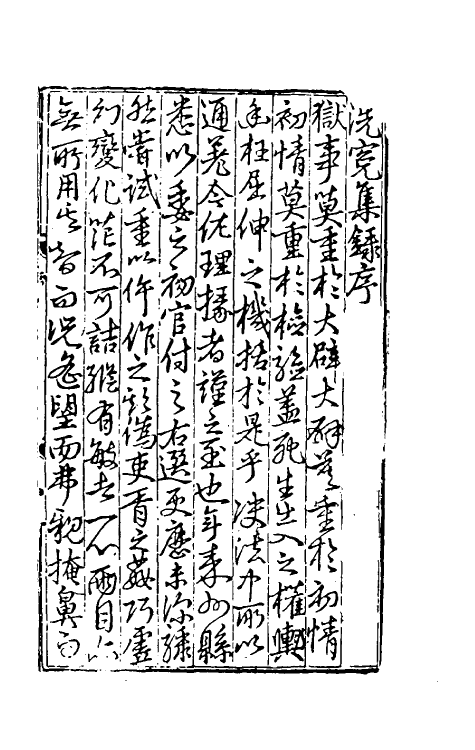 洗冤集錄序
獄事莫重於大辟大辟莫重於初情
初情莫重於檢驗蓋死生出入之權輿
幽枉屈伸之機括於是乎決法中所以
通差今佐理掾者謹之至也年來州縣
悉以委之初官付之右選更歷未深驟
然嘗試重以仵作之欺偽吏胥之姦巧虛
幻變化茫不可詰縱有敏者一心兩目亦
無所用其智而況遙望而弗親掩鼻而